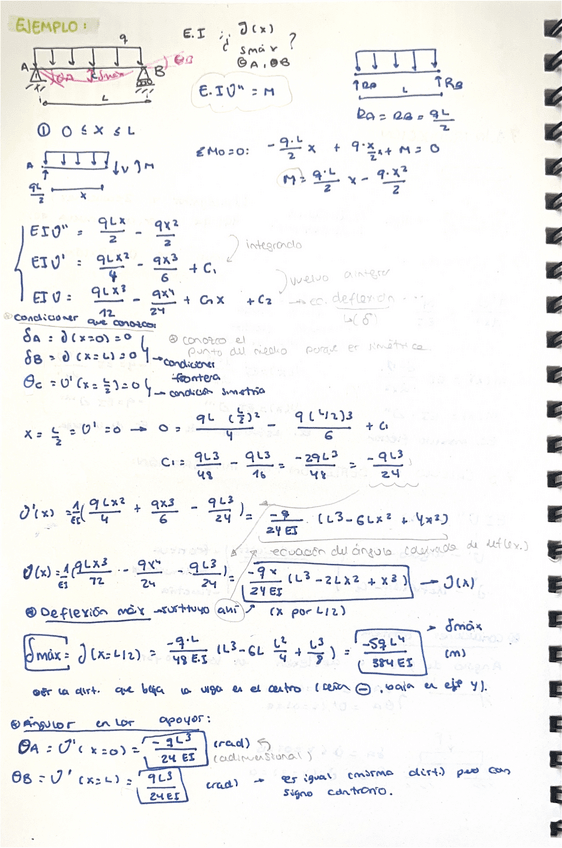 EJEMPLO:
q
E.I ¿ v(x)
δmáx ?
θA, θB
A
θA
δmáx
B
θB
L
E.I v'' = M
RA
RB
L
RA = RB = qL/2
① 0 ≤ x ≤ L
A
V
M
qL/2
x
ΣMo=0: -q·L/2 x + q·x x/2 + M = 0
M = q·L/2 x - q·x²/2
EIv'' = qLx/2 - qx²/2
EIv' = qLx²/4 - qx³/6 + C1
integrado
EIv = qLx³/12 - qx⁴/24 + C1x + C2
vuelvo a integrar
→ ec. deflexión ...
↳(δ)
condiciones que conozco:
δA = v(x=0) = 0
δB = v(x=L) = 0 → condiciones frontera
conozco el
punto del medio porque es simétrica
θC = v'(x = L/2) = 0 → condición simetría
x = L/2 = v' = 0 → 0 = qL (L/2)²/4 - q(L/2)3/6 + C1
C1 = qL3/48 - qL3/16 = -2qL3/48 = -qL3/24
v'(x) = 1/EI (qLx2/4 + qx3/6 - qL3/24) = -q/24EI (L³-6Lx² + 4x³)
ecuación del ángulo (derivada de deflex.)
v(x) = 1/EI (qLx3/72 - qx⁴/24 - qL3/24) = -qx/24EI (L³-2Lx² + x³) → v(x)
Deflexión máx → sustituyo ahí (x por L/2)
δmáx = v(x=L/2) = -q·L/48E.I (L³-6L L²/4 + L³/8) = -5qL⁴/384EI
→ δmáx
(m)
es la dist. que baja la viga en el centro (señn ⊖, baja en eje y).
Ángulos en los apoyos:
θA = v'(x=0) = -qL3/24EI (rad)
(adimensional)
θB = v'(x=L) = qL3/24EI (rad) → es igual (misma dist.) pero con
signo contrario.